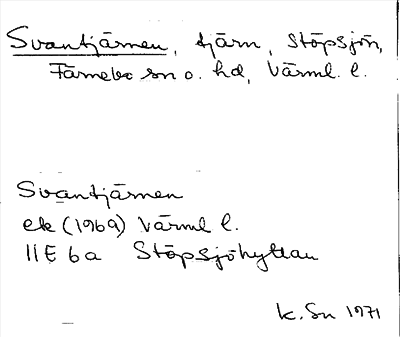 Svantjärnen, tjärn, Stöpsjön,
Färnebo sn o. hd, Värml. l.
Svantjärnen
ek (1969) Värml l.
11E 6a Stöpsjöhyttan
K. Sn 1971